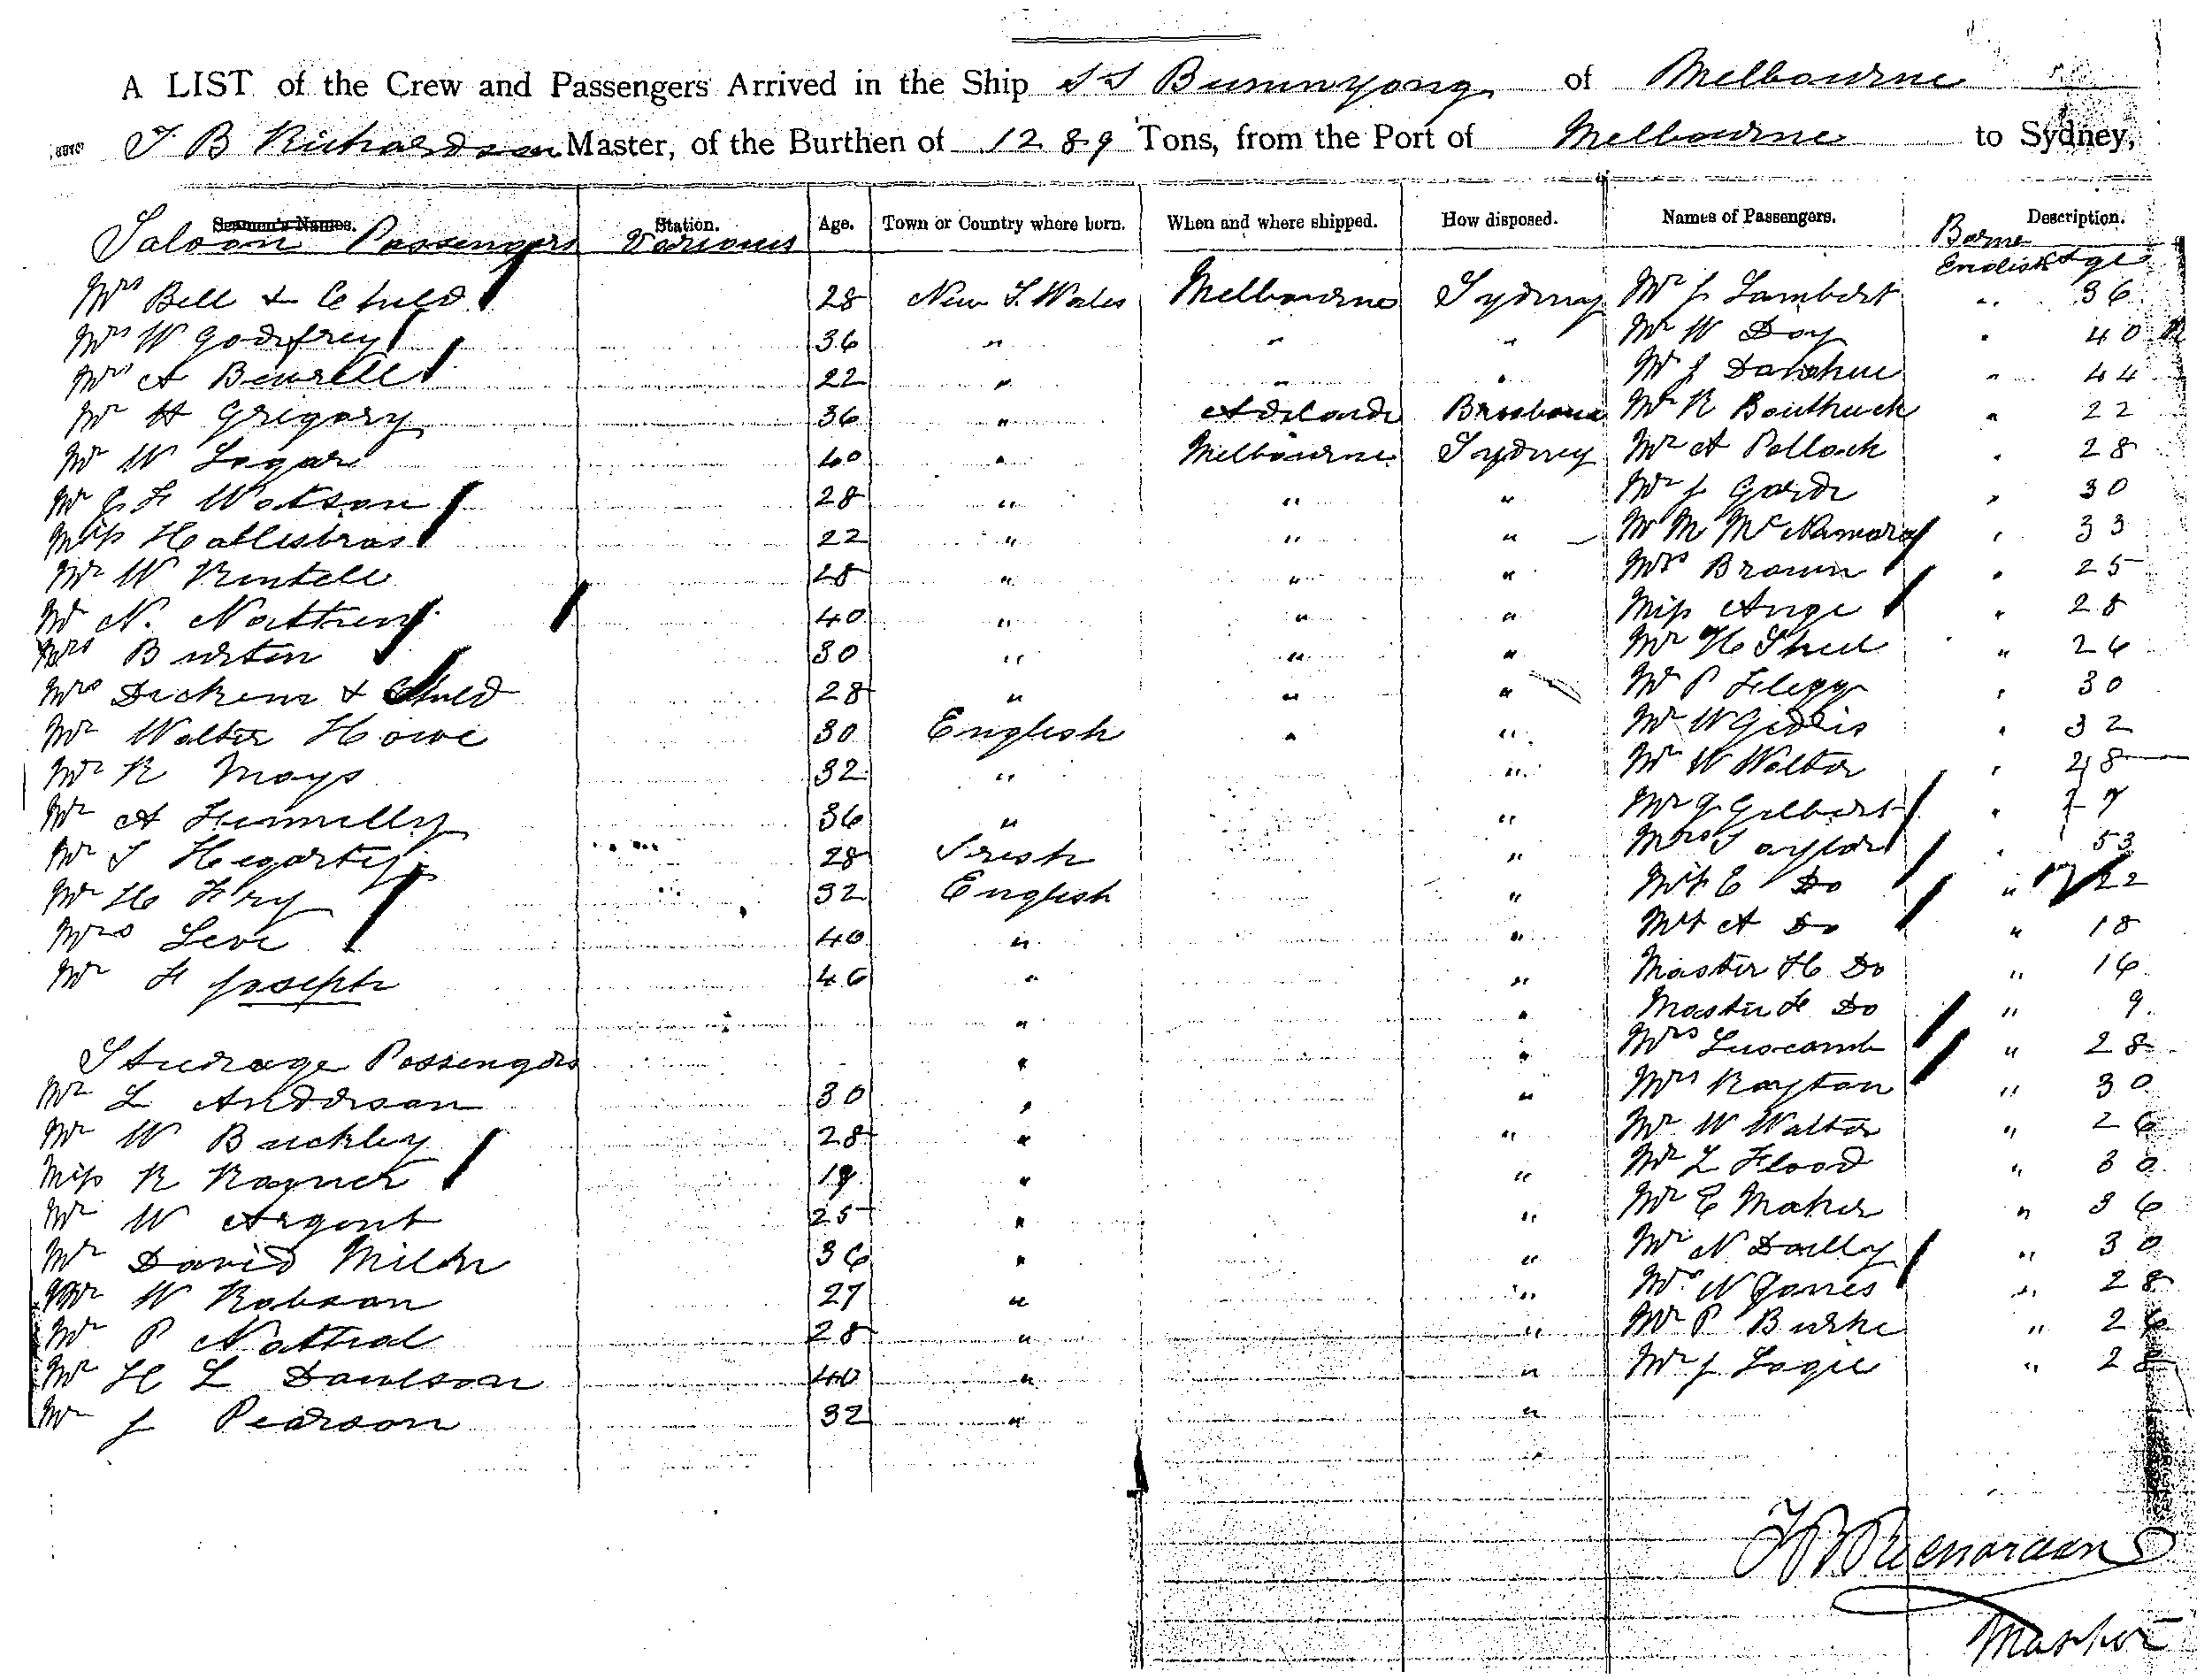 A LIST of the Crew and Passengers Arrived in the Ship S S Bunninyong of Melbourne
T B Richardson Master, of the Burthen of 1289 Tons, from the Port of Melbourne to Sydney,
Seamen's Names. Station. Age. Town or Country where born. When and where shipped. How disposed. Names of Passengers. Description.
Saloon Passengers Various Borne English Age
Mrs Bell & Child 28 New S. Wales Melbourne Sydney Mr J Lambert " 36
Mrs W Godfrey 36 " " " Mr W Day " 40
Mrs A 22 " " " Mr J Danahue " 44
Mr H Gregory 36 " Adelaide Brisbane Mr R " 22
Mr W Logan 40 " Melbourne Sydney Mr A Pollock " 28
Mr J. F Watson 28 " " " Mr J Garde " 30
Miss 22 " " " Mr M McNamara " 33
Mr W Rintell 28 " " " Mrs Brown " 25
Mr N. 40 " " " Miss Ange " 28
Mrs Burton 30 " " " Mr H " 26
Mrs Dickens & Child 28 " " " Mr P Flegg " 30
Mr Walter Howe 30 English " " Mr W Geddis " 32
Mr R Mays 32 " " Mr W Walter " 28
Mr A 36 " " Mr J Gilbert " 27
Mr T Hegarty 28 Irish " Mrs Taylor " 53
Mr H Fry 32 English " Miss E Do " 22
Mrs Levi 40 " " Miss A Do " 18
Mr F Joseph 46 " " Master H Do " 16
" " Master F Do " 9
Steerage Passengers " " Mrs Luscomb " 28
Mr L Anderson 30 " " Mrs Rayton " 30
Mr W Buckley 28 " " Mr W Walter " 26
Miss R Rayner 19 " " Mr L Flood " 30
Mr W Argent 25 " " Mr E Maher " 36
Mr David Miln 36 " " Mr N Dailly " 30
Mr W Robson 27 " " Mrs W Jones " 28
Mr P Nattral 28 " " Mr P Burke " 26
Mr H L Dawlson 40 " " Mr J Logie " 28
Mr J Pearson 32 " "
T B Richardson
Master